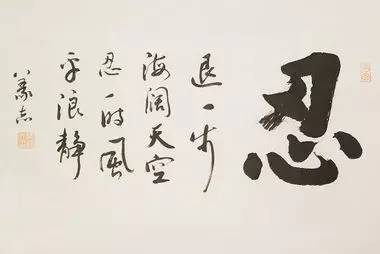 忍
退一步
海阔天空
忍一时風
平浪静